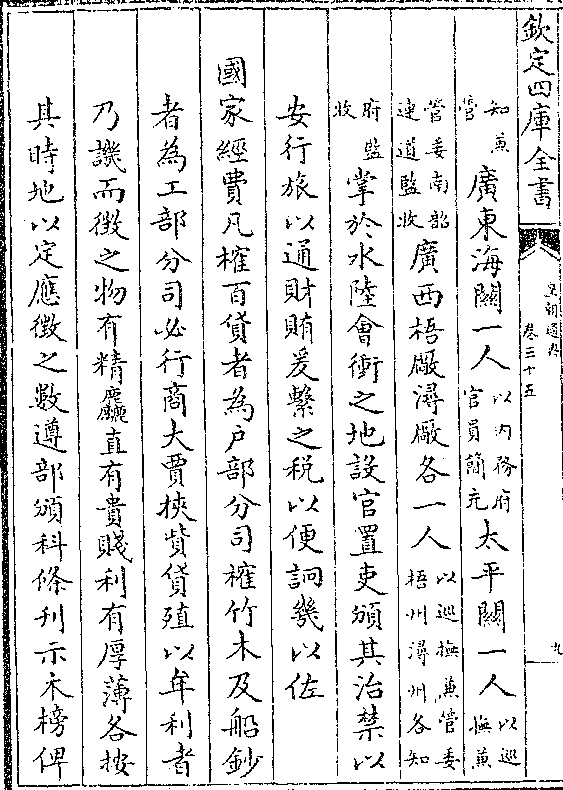 欽定四庫全書
皇朝通典
卷三十五
九
知兼
管
廣東海關一人
以内務府
官員簡充
太平關一人
以巡
撫兼
管委南韶
連道監收
廣西梧厰潯厰各一人
以巡撫兼管委
梧州潯州各知
府監
收
掌於水陸會衝之地設官置吏頒其治禁以
安行旅以通財賄爰繫之税以便詗幾以佐
國家經費凡榷百貨者為户部分司榷竹木及船鈔
者為工部分司必行商大賈挾貲貨殖以牟利者
乃譏而徵之物有精麤直有貴賤利有厚薄各按
其時地以定應徵之數遵部頒科條刊示木榜俾